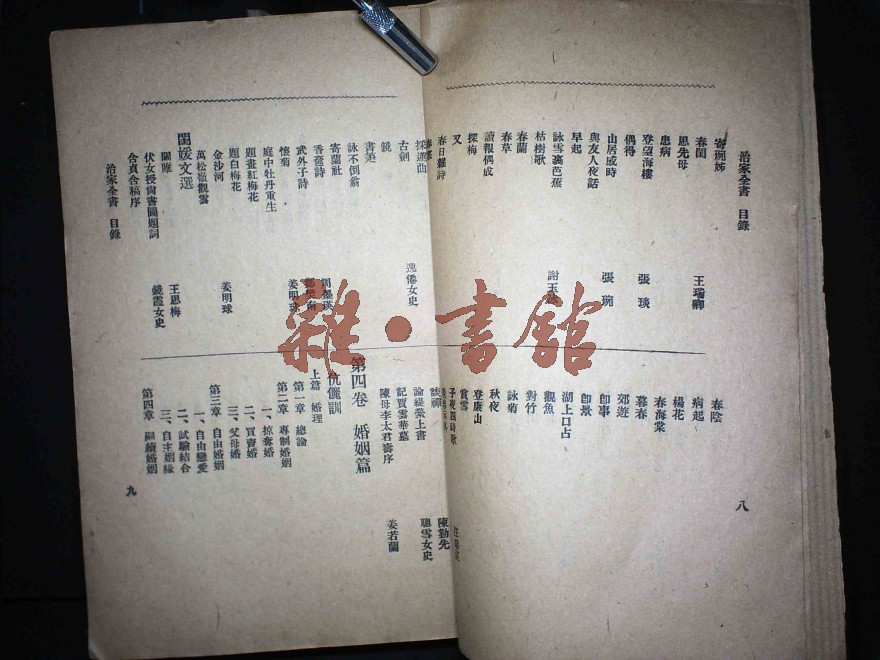 治家全書 目錄
八
寄琬姊
春閨
思先母
患病
登望海樓
偶得
山居成時
與友人夜話
早起
詠雪裏芭蕉
枯樹歌
春蘭
春草
讀報偶成
探梅
又
春日雜詩
王瑞卿
張琰
張琬
謝玉
春陰
病起
楊花
春海棠
暮春
郊遊
卽事
卽景
湖上口占
觀魚
對竹
詠菊
秋夜
登廉山
賞雪
子夜四時歌
採蓮曲
古劍
鏡
書筴
詠不倒翁
寄蘭社
香奩詩
武外子詩
懷菊
庭中牡丹重生
題畫紅梅花
題白梅花
金沙河
萬松嶺觀雲
閨媛文選
關雎
伏女授尙書圖題詞
含貞含稿序
治家全書 目錄
逸倦女史
周墨瑛
姜明球
姜明球
王思梅
鏡霞女史
談禪
論緹縈上書
記賈雲華墓
陳母李太君壽序
陳勤先
聽雪女史
姜若蘭
第四卷 婚姻篇
伉儷訓
上篇 婚理
第一章 總論
第二章 專制婚姻
一、掠奪婚
二、買賣婚
三、父母婚
第三章 自由婚姻
一、自由戀愛
二、試驗結合
三、自主姻緣
第四章 嗣續婚姻
九
雜·書館